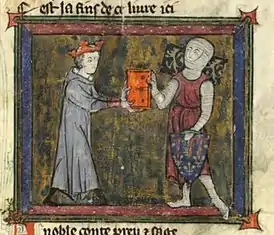 est la fins de ce liure ici
noble conte preu & sage